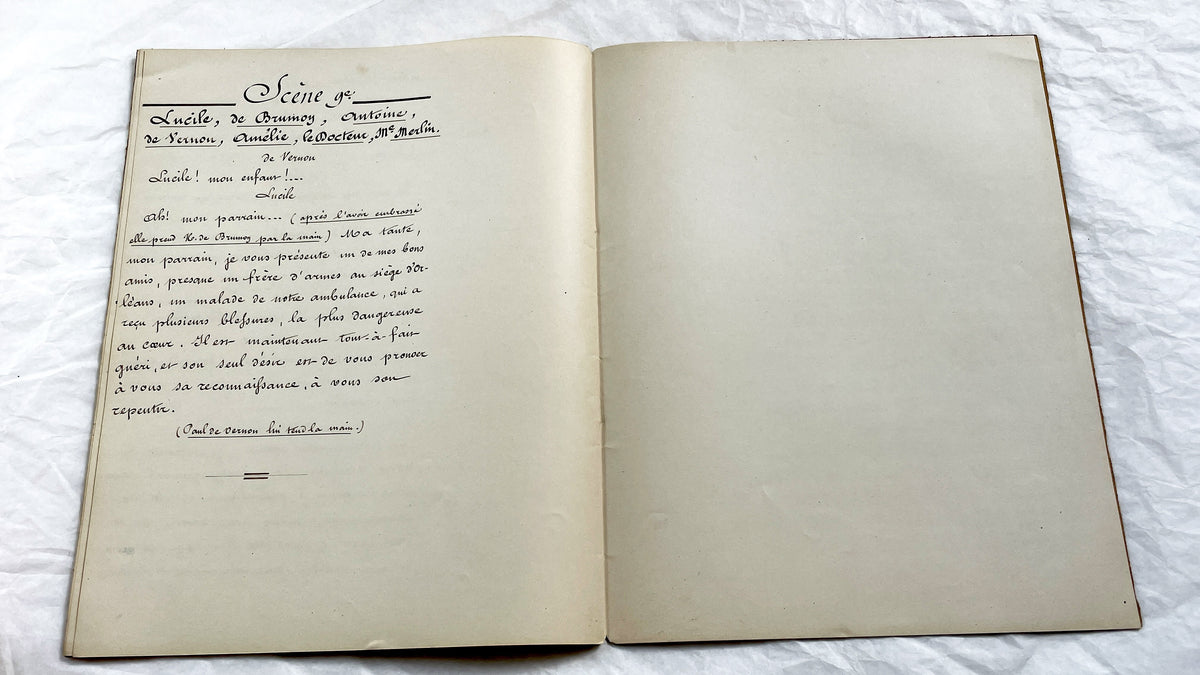 Scène 9e.
Lucile, de Brumoy, Antoine,
de Vernon, Amélie, le Docteur, Me Merlin.
de Vernon
Lucile! mon enfant!...
Lucile
Ah! mon parrain... (après l'avoir embrassé
elle prend M. de Brumoy par la main) Ma tante,
mon parrain, je vous présente un de mes bons
amis, presque un frère d'armes au siège d'Or-
léans, un malade de notre ambulance, qui a
reçu plusieurs blessures, la plus dangereuse
au cœur. Il est maintenant tout-à-fait
guéri, et son seul désir est de vous prouver
à vous sa reconnaissance, à vous son
repentir.
(Paul de Vernon lui tend la main.)